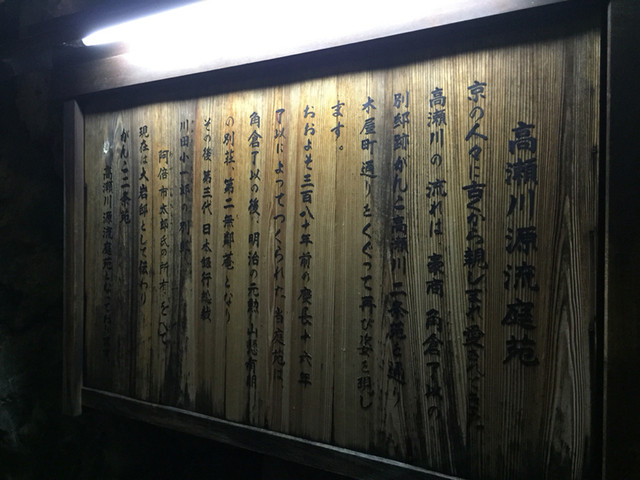 高瀬川源流庭苑
京の人々に古くから親しまれ愛されてきた
高瀬川の流れは、豪商 角倉了以の
別邸跡がんこ高瀬川二条苑を通り
木屋町通りをくぐって再び姿を現し
ます。
おおよそ三百八十年前の慶長十六年
了以によってつくられた当庭苑は
角倉了以の後、明治の元勲・山縣有朋
の別荘、第二無鄰菴となり
その後 第三代 日本銀行総裁
川田小一郎の別邸
阿倍市太郎氏の所有をへて
現在は大岩邸として伝わり
がんこ二条苑
高瀬川源流庭苑となっております